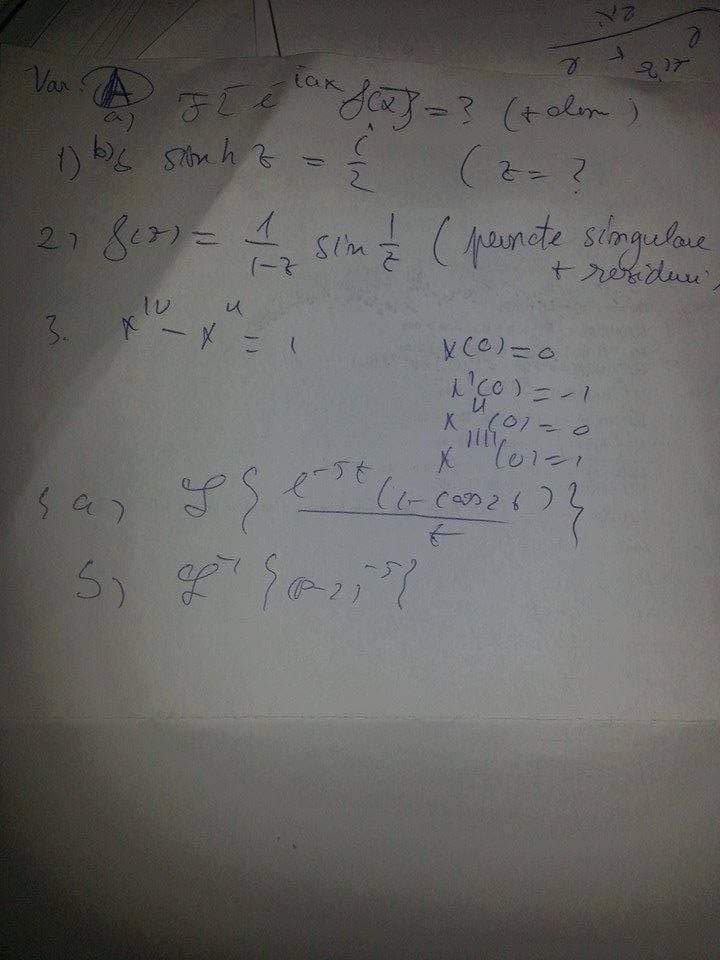 Var. A
a) F{e^{-iax} f(x)} = ? (+ dem)
1) b) sinh z = i/2 ( z = ?
2) f(z) = 1/(1-z) sin 1/z ( puncte singulare
+ reziduuri
3. x^{IV} - x^{II} = 1
x(0) = 0
x'(0) = -1
x''(0) = 0
x''''(0) = 1
a) L{ e^{-5t} (1-cos2t) / t }
b) L^{-1} { (p-2)^{-5} }